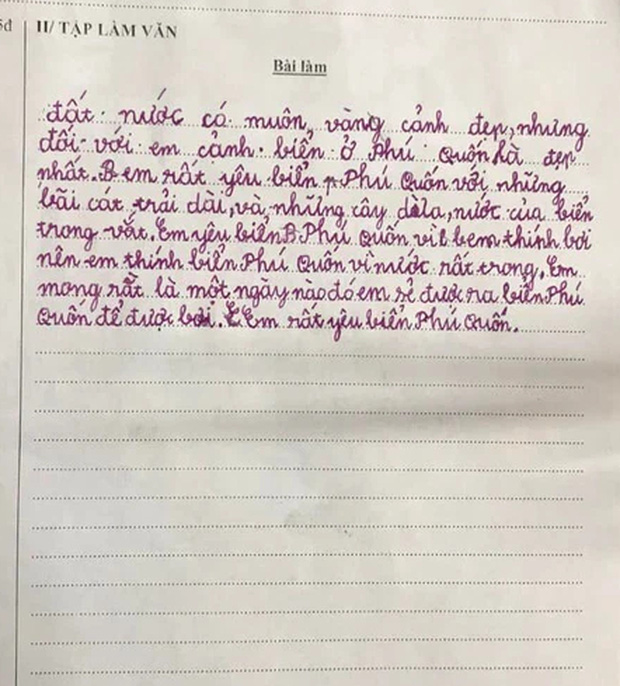 5đ
II/ TẬP LÀM VĂN
Bài làm
đất nước có muôn, vàng cảnh đẹp, nhưng
đối với em cảnh biển ở Phú Quốn là đẹp
nhất. B em rất yêu biển Phú Quốn với những
bãi cát trải dài, và những cây dừa, nước của biển
trong vắt. Em yêu biển Phú Quốn vì em thính bơi
nên em thính biển Phú Quốn vì nước rất trong. Em
mong rằt là một ngày nào đó em sẻ được ra biển Phú
Quốn để được bơi. Em rất yêu biển Phú Quốn.